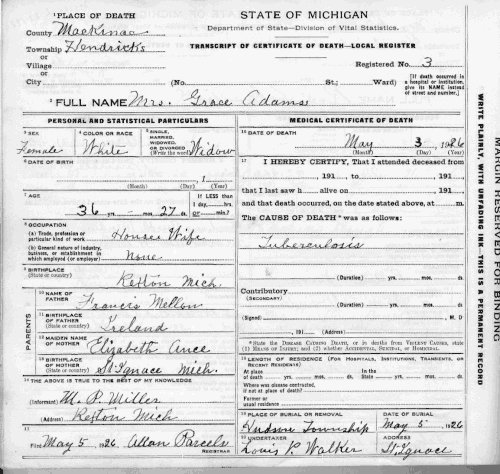 1 PLACE OF DEATH
STATE OF MICHIGAN
County Mackinac
Department of State—Division of Vital Statistics.
Township Hendricks
TRANSCRIPT OF CERTIFICATE OF DEATH—LOCAL REGISTER
or
Village
Registered No. 3
or
City (No. St.; Ward)
[If death occurred in a hospital or institution, give its NAME instead of street and number.]
2 FULL NAME Mrs. Grace Adams
PERSONAL AND STATISTICAL PARTICULARS
3 SEX
Female
4 COLOR OR RACE
White
5 SINGLE, MARRIED, WIDOWED, OR DIVORCED (Write the word) Widow
6 DATE OF BIRTH
, 1
(Month) (Day) (Year)
7 AGE
36 yrs. – mos. 27 ds.
If LESS than 1 day, hrs. or min.?
8 OCCUPATION
(a) Trade, profession or particular kind of work House Wife
(b) General nature of industry, business, or establishment in which employed (or employer) None
9 BIRTHPLACE
(State or country) Rexton Mich.
PARENTS
10 NAME OF FATHER Francis Mellon
11 BIRTHPLACE OF FATHER (State or country) Ireland
12 MAIDEN NAME OF MOTHER Elizabeth Ance
13 BIRTHPLACE OF MOTHER (State or country) St Ignace Mich.
14 THE ABOVE IS TRUE TO THE BEST OF MY KNOWLEDGE
(Informant) M. P. Miller
(Address) Rexton Mich
15
Filed May 5 1926 Allan Parcels
REGISTRAR
MEDICAL CERTIFICATE OF DEATH
16 DATE OF DEATH
May 3, 1926
(Month) (Day) (Year)
17 I HEREBY CERTIFY, That I attended deceased from
, 191 to , 191
that I last saw h alive on , 191
and that death occurred, on the date stated above, at m.
The CAUSE OF DEATH* was as follows:
Tuberculosis
(Duration) yrs. mos. ds
Contributory
(SECONDARY)
(Duration) yrs. mos. ds.
(Signed) , M. D
, 191 (Address)
*State the DISEASE CAUSING DEATH, or in deaths from VIOLENT CAUSES, state (1) MEANS OF INJURY; and (2) whether ACCIDENTAL, SUICIDAL, or HOMICIDAL.
18 LENGTH OF RESIDENCE (FOR HOSPITALS, INSTITUTIONS, TRANSIENTS, OR RECENT RESIDENTS)
At place of death yrs. mos. ds. In the State yrs. mos. ds.
Where was disease contracted, if not at place of death?
Former or usual residence
19 PLACE OF BURIAL OR REMOVAL
Hudson Township
DATE OF BURIAL
May 5 1926
20 UNDERTAKER
Louis P. Walker
ADDRESS
St. Ignace
MARGIN RESERVED FOR BINDING
WRITE PLAINLY, WITH UNFADING INK—THIS IS A PERMANENT RECORD